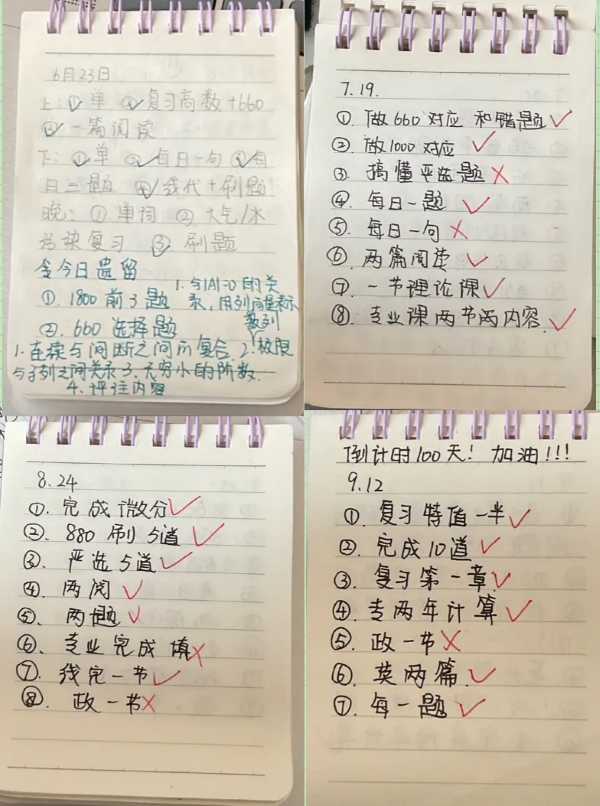 6月23日
上:①单 ②复习高数+660
③一篇阅读
下:①单 ②每日一句 ③每
日一题 ④线代+刷题
晚:①单词 ②大气/水
污染复习 ③刷题
今日遗留
①.1800前3题
②.660选择题
1.与|A|=0的关
系,用列向量表示
1.连续与间断之间的复合 2.极限
数列
与子列之间关系 3.无穷小的阶数.
4.评注内容
7.19.
①做660对应和错题
②做1000对应
③搞懂严选题
④每日一题
⑤每日一句
⑥两篇阅读
⑦一节理论课
⑧专业课两节两内容.
8.24
①.完成微分
②.880刷5道
③.严选5道
④.两阅
⑤.两题
⑥.专业完成填
⑦.线完一节
⑧.政一节
倒计时100天!加油!!!
9.12
①复习特值一半
②完成10道
③复习第一章
④专两年计算
⑤政一节
⑥英两篇
⑦每一题